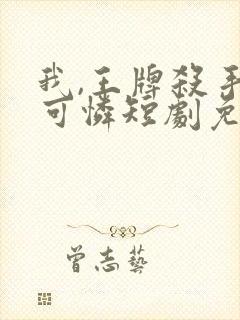 我,王牌殺手
可憐短劇免
曾志藝